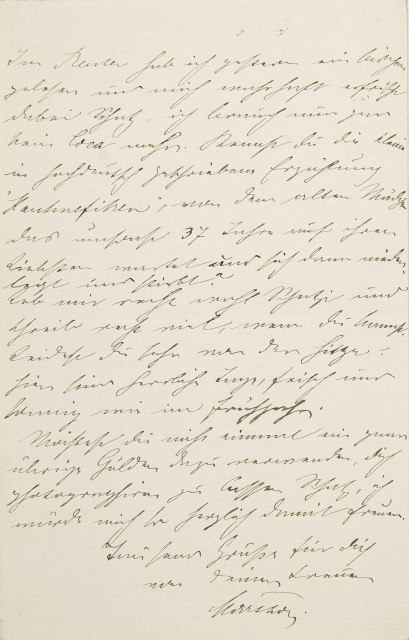 Im Reuter hab ich gestern ein bischen
gelesen und mich wahrhaft erfrischt
dabei Schatz, ich brauch nun gar
kein Coca mehr. Kennst du die kleine
in hochdeutsch geschriebene Erzählung
von dem alten Mädchen
das 37 Jahre auf ihren
Liebsten wartet und sich dann nieder
legt und stirbt?
Leb mir recht wohl Schatz und
schreib recht viel, wenn du kannst.
Leidest du sehr von der Hitze?
Hier sind herrliche Tage, frisch und
sonnig wie im Frühjahr.
Möchtest du nicht einmal ein paar
übrige Gulden dazu verwenden, dich
photographiren zu lassen Schatz, ich
würde mich so herzlich damit freuen.
Tausend Grüße für dich
von deiner treuen
Martha.